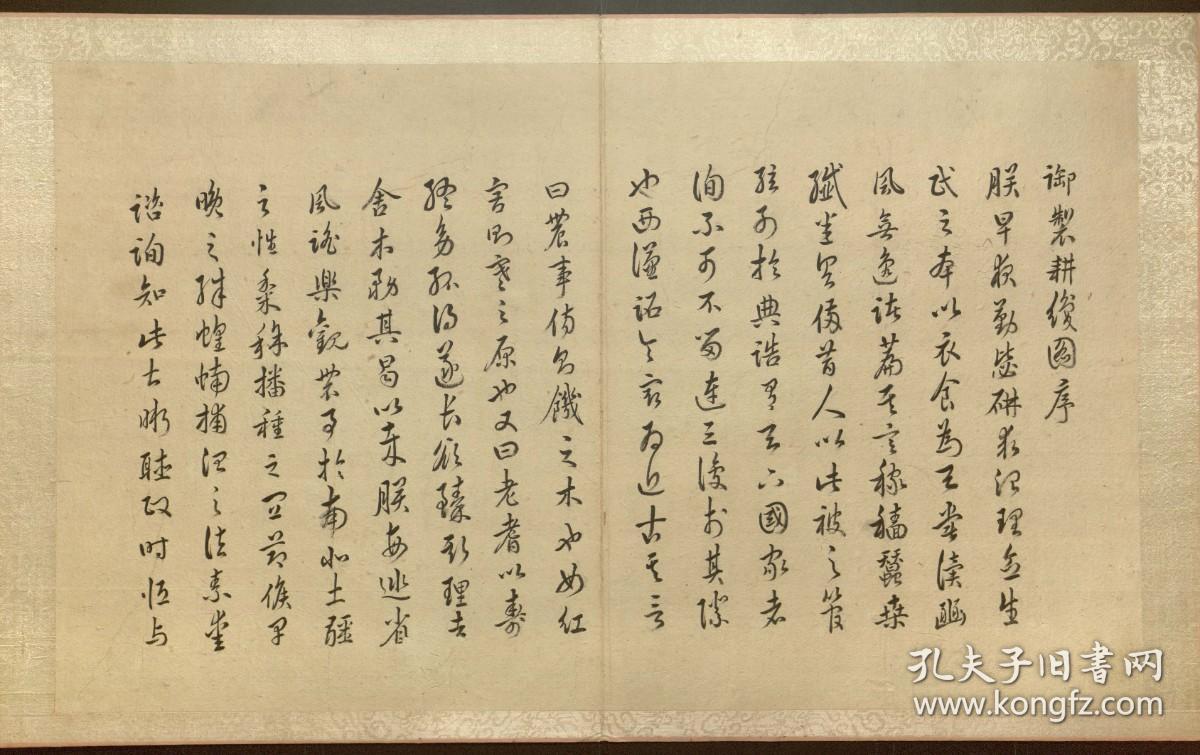 御製耕織圖序
朕早夜勤毖研求治理念生
民之本以衣食為天嘗讀豳
風無逸諸篇其言稼穡蠶桑
纖悉具備昔人以此被之管
絃列於典誥有天下國家者
洵不可不留連三復於其際
也西漢詔令最為近古其言
曰農事傷則饑之本也女紅
害則寒之原也又曰老耆以壽
終幼孤得遂長欲臻斯理者
舍本務其曷以哉朕每巡省
風謠樂觀農事於南北土疆
之性黍稷播種之宜節候早
晚之殊蝗蝻捕治之法素愛
諮詢知此甚晰聽政时恒与
孔夫子旧书网
www.kongfz.com